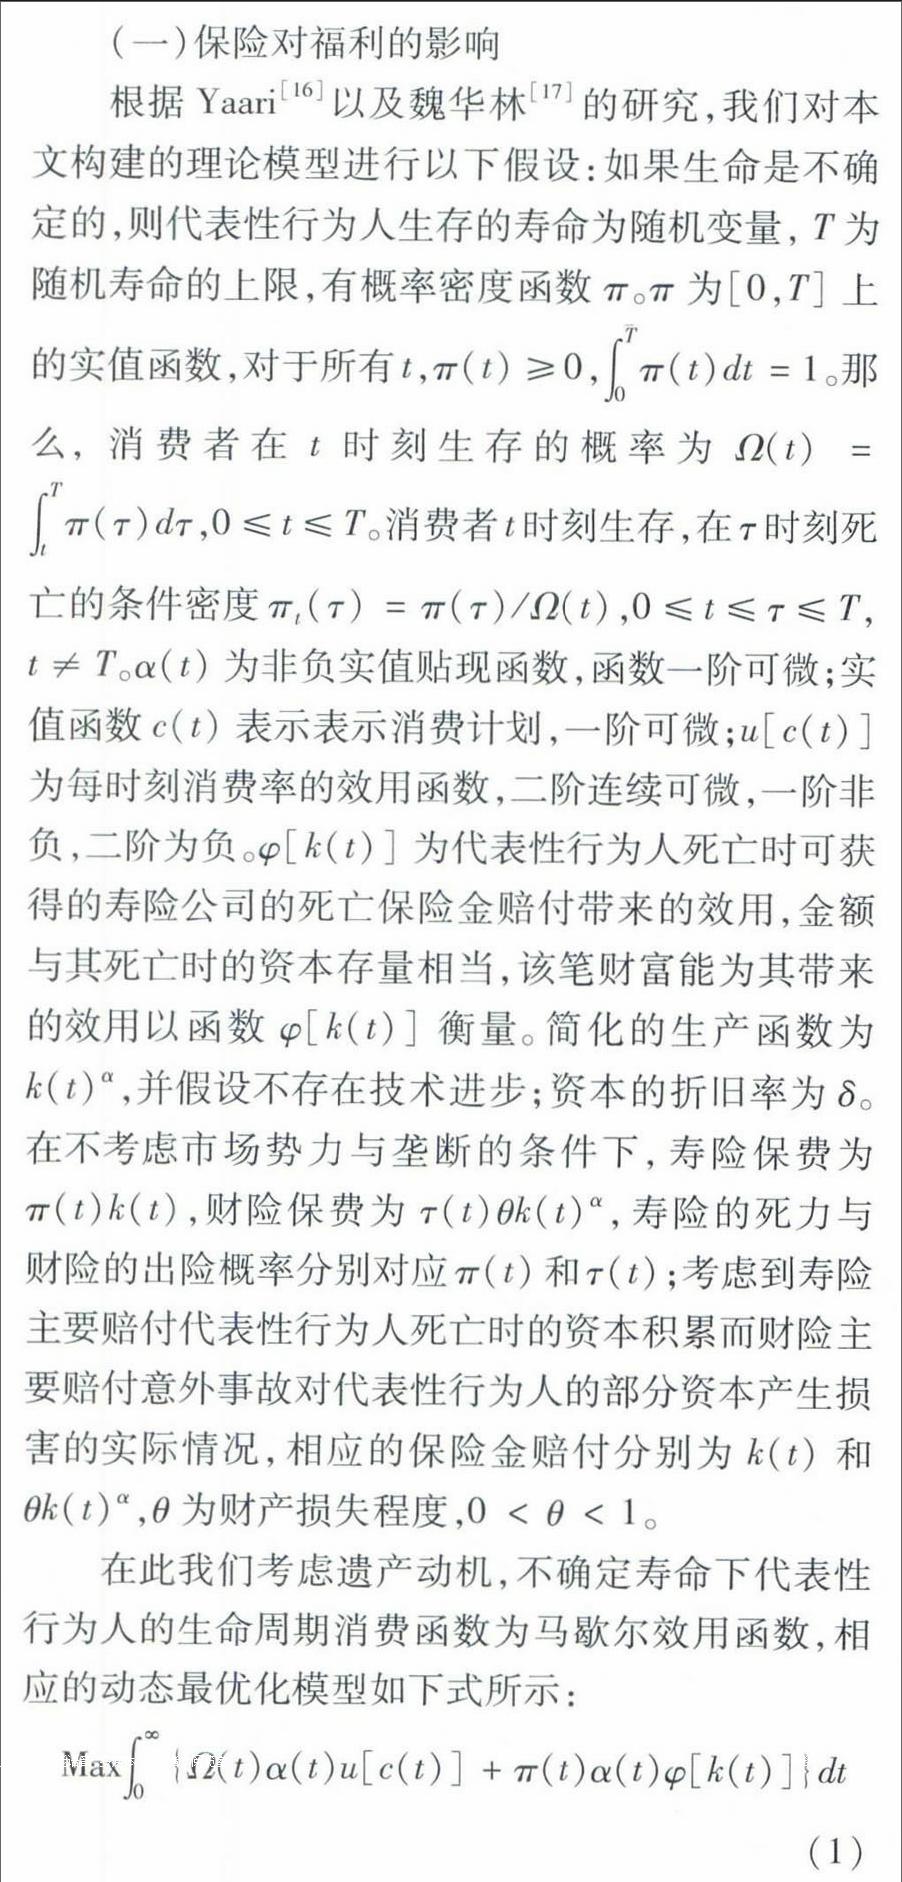 (一)保险对福利的影响
根据 Yaari[16]以及魏华林[17]的研究,我们对本
文构建的理论模型进行以下假设:如果生命是不确
定的,则代表性行为人生存的寿命为随机变量, T 为
随机寿命的上限,有概率密度函数 π。π 为[0,T] 上
的实值函数,对于所有 t,π(t) ≥0,∫₀ᵀ π(t)dt = 1。那
么, 消费者在 t 时刻生存的概率为 Ω(t) =
∫ₜᵀ π(τ)dτ,0 ≤ t ≤ T。消费者 t 时刻生存,在 τ 时刻死
亡的条件密度 πₜ(τ) = π(τ)/Ω(t),0 ≤ t ≤ τ ≤ T,
t ≠ T。α(t) 为非负实值贴现函数,函数一阶可微;实
值函数 c(t) 表示表示消费计划,一阶可微;u[c(t)]
为每时刻消费率的效用函数,二阶连续可微,一阶非
负,二阶为负。φ[k(t)] 为代表性行为人死亡时可获
得的寿险公司的死亡保险金赔付带来的效用,金额
与其死亡时的资本存量相当,该笔财富能为其带来
的效用以函数 φ[k(t)] 衡量。简化的生产函数为
k(t)^α,并假设不存在技术进步;资本的折旧率为 δ。
在不考虑市场势力与垄断的条件下, 寿险保费为
π(t)k(t),财险保费为 τ(t)θk(t)^α, 寿险的死力与
财险的出险概率分别对应 π(t) 和 τ(t);考虑到寿险
主要赔付代表性行为人死亡时的资本积累而财险主
要赔付意外事故对代表性行为人的部分资本产生损
害的实际情况, 相应的保险金赔付分别为 k(t) 和
θk(t)^α,θ 为财产损失程度,0 < θ < 1。
在此我们考虑遗产动机,不确定寿命下代表性
行为人的生命周期消费函数为马歇尔效用函数,相
应的动态最优化模型如下式所示:
Max∫₀^∞ {Ω(t)α(t)u[c(t)] + π(t)α(t)φ[k(t)]}dt
(1)